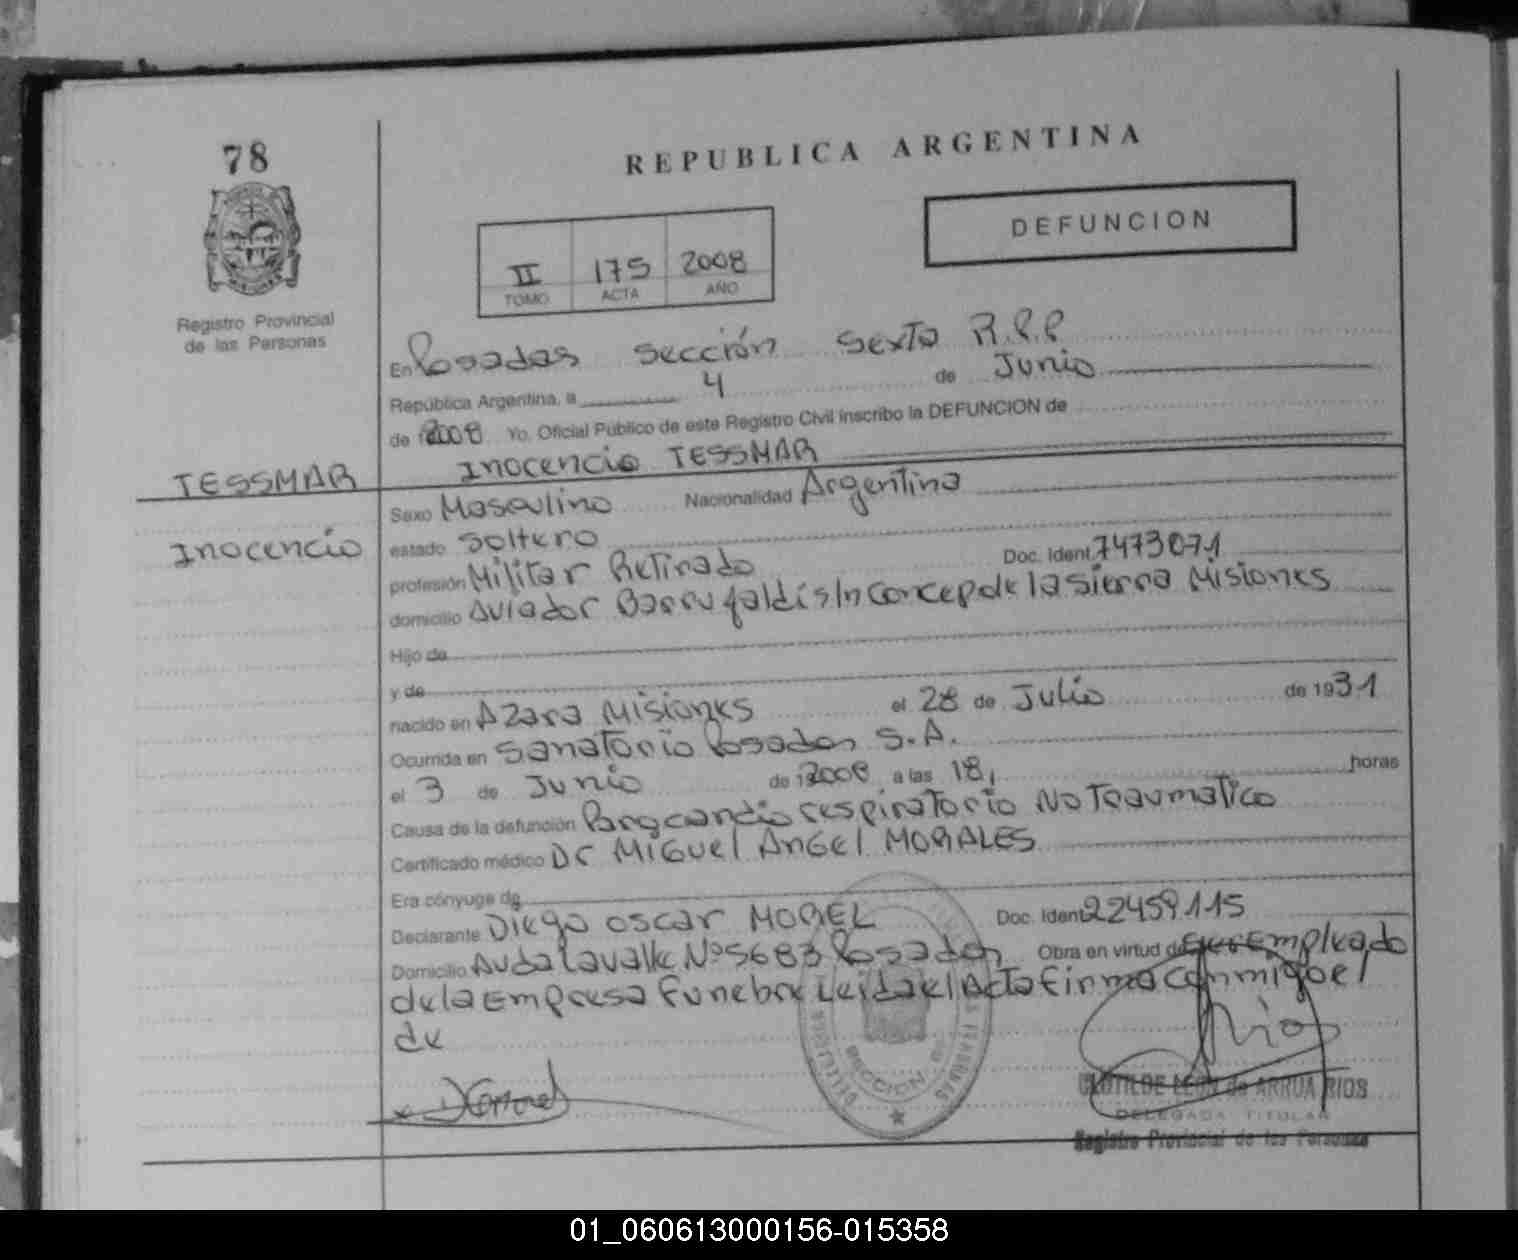 78
REPUBLICA ARGENTINA
DEFUNCION
II 175 2008
TOMO ACTA AÑO
Registro Provincial
de las Personas
En Posadas Sección Sexta R.P.P
República Argentina, a 4 de Junio
de 2008 Yo, Oficial Público de este Registro Civil inscribo la DEFUNCION de
TESSMAR Inocencio TESSMAR
Sexo Masculino Nacionalidad Argentina
Inocencio estado Soltero
profesión Militar Retirado Doc. Ident. 7473071
domicilio Aviador Barrufaldi s/n Concep de la Sierra Misiones
Hijo de
y de
nacido en Azara Misiones el 28 de Julio de 1931
Ocurrida en Sanatorio Posadas S.A.
el 3 de Junio de 2008 a las 18, horas
Causa de la defunción Parocardio respiratorio No Traumatico
Certificado médico Dr Miguel Angel MORALES
Era cónyuge de
Declarante Diego Oscar MOREL Doc. Ident 22459115
Domicilio Avda Lavalle Nº 5683 Posadas Obra en virtud de Empleado
de la Empresa Funebre Leida el Acta Firma Conmigo el
de
CLOTILDE LEON de ARRUA RIOS
DELEGADA TITULAR
Registro Provincial de las Personas
01_060613000156-015358